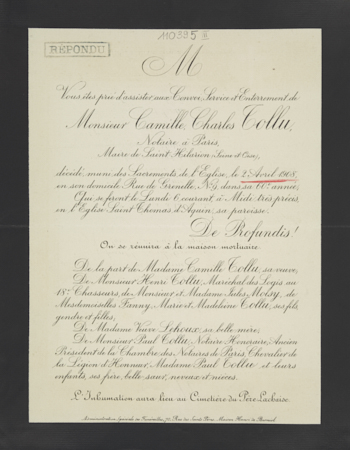 110395 II
RÉPONDU
M
Vous êtes prié d'assister aux Convoi, Service et Enterrement de
Monsieur Camille, Charles Tollu,
Notaire à Paris,
Maire de Saint Hilarion (Seine et Oise),
décédé, muni des Sacrements de l'Eglise, le 2 Avril 1908,
en son domicile, Rue de Grenelle, N°9, dans sa 60e année;
Qui se feront le Lundi 6 courant, à Midi très précis
en l'Eglise Saint Thomas d'Aquin, sa paroisse.
De Profundis!
On se réunira à la maison mortuaire.
De la part de Madame Camille Tollu, sa veuve,
De Monsieur Henri Tollu, Maréchal des Logis au
18e Chasseurs, de Monsieur et Madame Jules Moisy, de
Mesdemoiselles Fanny, Marie et Madeleine Tollu, ses fils,
gendre et filles,
De Madame Veuve Lehoux, sa belle mère,
De Monsieur Paul Tollu, Notaire Honoraire, Ancien
Président de la Chambre des Notaires de Paris, Chevalier de
la Légion d'Honneur, Madame Paul Tollu et leurs
enfants, ses frère, belle sœur, neveux et nièces.
L'Inhumation aura lieu au Cimetière du Père Lachaise.